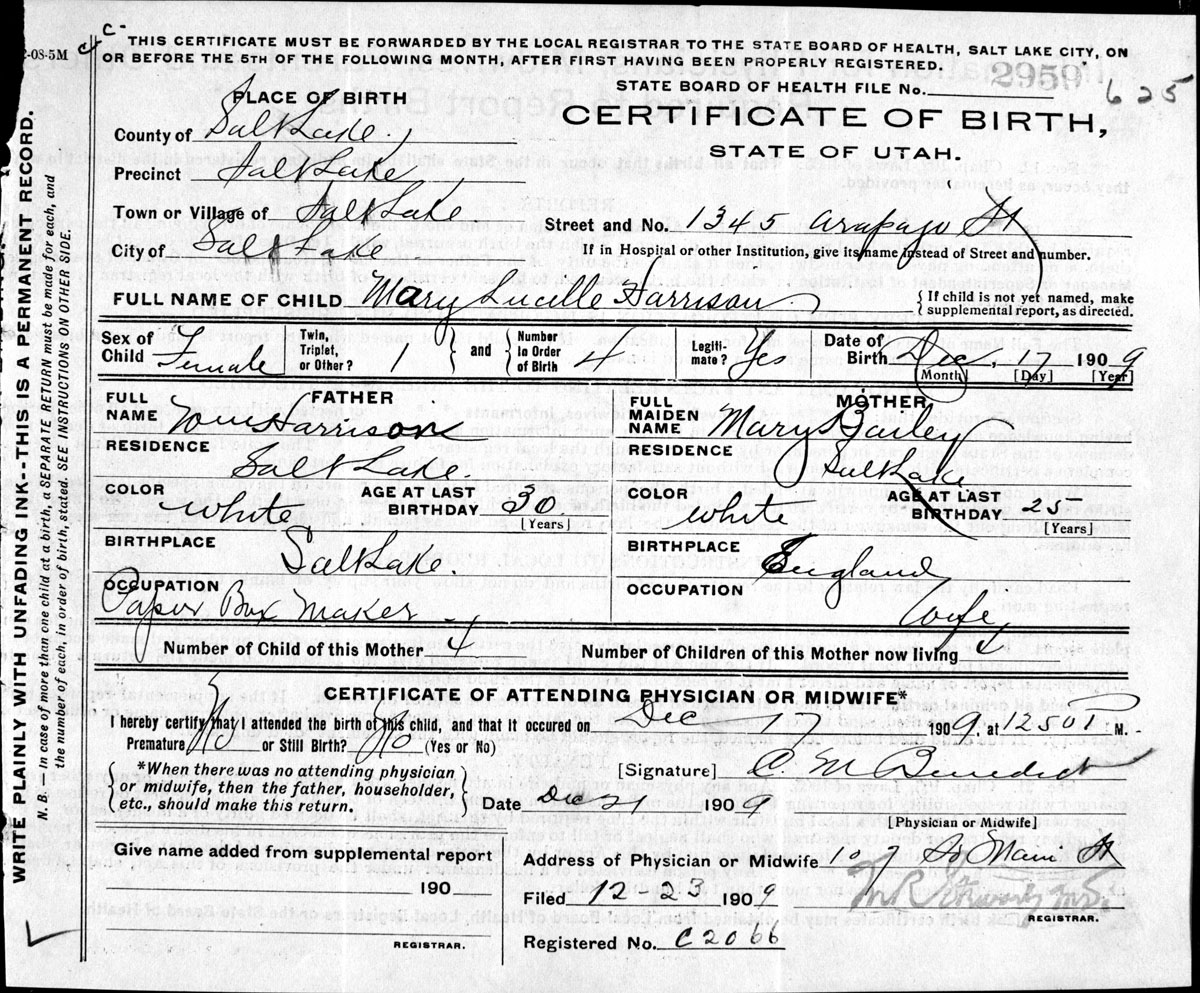 2-08-5M
C-
c
THIS CERTIFICATE MUST BE FORWARDED BY THE LOCAL REGISTRAR TO THE STATE BOARD OF HEALTH, SALT LAKE CITY, ON
OR BEFORE THE 5TH OF THE FOLLOWING MONTH, AFTER FIRST HAVING BEEN PROPERLY REGISTERED.
2959
625
STATE BOARD OF HEALTH FILE No.
PLACE OF BIRTH
CERTIFICATE OF BIRTH,
STATE OF UTAH.
County of Salt Lake
Precinct Salt Lake
Town or Village of Salt Lake
Street and No. 1345 Arapajo St
City of Salt Lake
If in Hospital or other Institution, give its name instead of Street and number.
FULL NAME OF CHILD Mary Lucelle Harrison
If child is not yet named, make
supplemental report, as directed.
Sex of Child Female
Twin, Triplet, or Other? 1
and
Number In Order of Birth 4
Legitimate? Yes
Date of Birth Dec, 17 1909
[Month] [Day] [Year]
FATHER
FULL NAME Wm Harrison
MOTHER
FULL MAIDEN NAME Mary Bailey
RESIDENCE Salt Lake
RESIDENCE Salt Lake
COLOR White
AGE AT LAST BIRTHDAY 30
[Years]
COLOR White
AGE AT LAST BIRTHDAY 25
[Years]
BIRTHPLACE Salt Lake
BIRTHPLACE England
OCCUPATION Paper Box Maker
OCCUPATION Wife
Number of Child of this Mother 4
Number of Children of this Mother now living 4
CERTIFICATE OF ATTENDING PHYSICIAN OR MIDWIFE*
I hereby certify that I attended the birth of this child, and that it occurred on Dec 17 1909, at 1250 P M.
Premature No or Still Birth? No (Yes or No)
*When there was no attending physician
or midwife, then the father, householder,
etc., should make this return.
[Signature] C. M Benedict
Date Dec 21 1909
[Physician or Midwife]
Give name added from supplemental report
190
REGISTRAR.
Address of Physician or Midwife 107 So Main St
Filed 12-23 1909
REGISTRAR.
Registered No. C2066
WRITE PLAINLY WITH UNFADING INK--THIS IS A PERMANENT RECORD.
N. B.—In case of more than one child at a birth, a SEPARATE RETURN must be made for each, and
the number of each, in order of birth, stated. SEE INSTRUCTIONS ON OTHER SIDE.